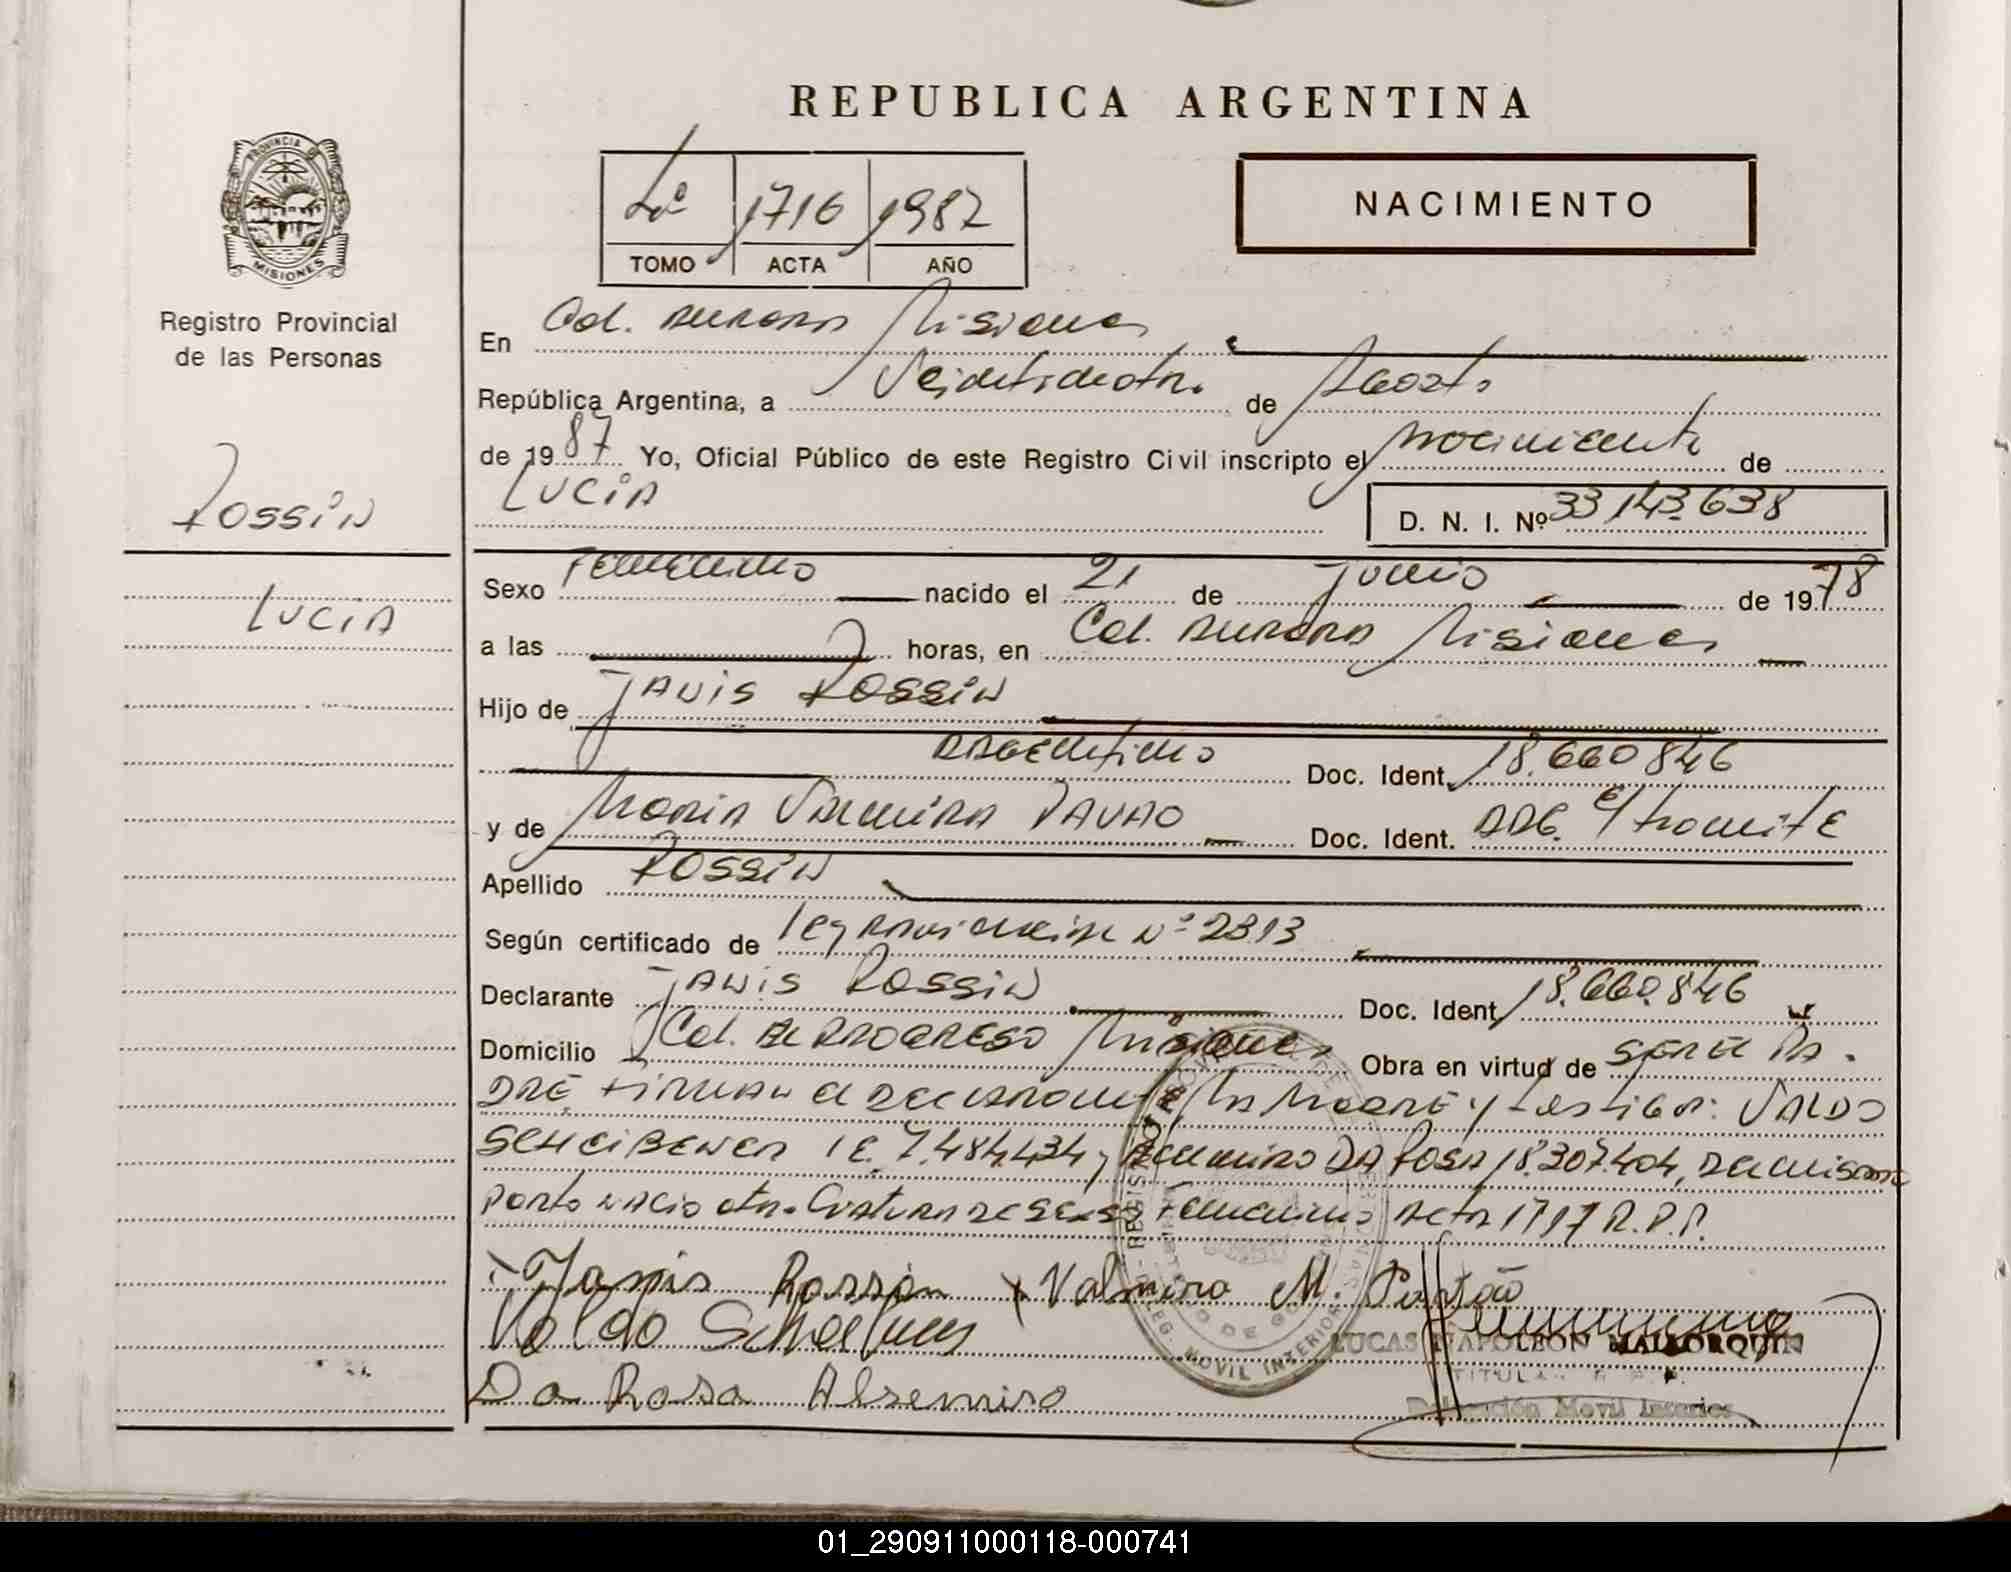 PROVINCIA DE
MISIONES
Registro Provincial
de las Personas
ROSSIN
LUCIA
REPUBLICA ARGENTINA
1716 1987
TOMO ACTA AÑO
NACIMIENTO
En Col. AURORA Misiones
República Argentina, a Veintiocho de Agosto
de 1987 Yo, Oficial Público de este Registro Civil inscripto el nacimiento de
LUCIA D. N. I. Nº 33 143.638
Sexo Femenino nacido el 21 de junio de 1978
a las horas, en Col. AURORA Misiones
Hijo de JANIS ROSSIN
ARGENTINO Doc. Ident. 18.660 846
y de MARIA VALMIRA PAVAO Doc. Ident. ARG. E/ tramite
Apellido ROSSIN
Según certificado de Ley Nº 2813
Declarante JANIS ROSSIN Doc. Ident. 18.660.846
Domicilio Col. EL PROGRESO Misiones Obra en virtud de SER EL PA.
DRE FIRMAN el DECLARANTE LA MADRE y testigos: VALDO
1E. 7.484.434 y DA ROSA 18.307.404, DEL MISMO
PARTO NACIO OTRA CRIATURA DE SEXO FEMENINO ACTA 1717 R.P.P.
Janis Rossin x Valmira M. Pavão
Valdo
LUCAS NAPOLEON MALLORQUIN
TITULAR
Delegación Movil Interior
Da Rosa Alsemiro
REG. MOVIL INTERIOR
01_290911000118-000741